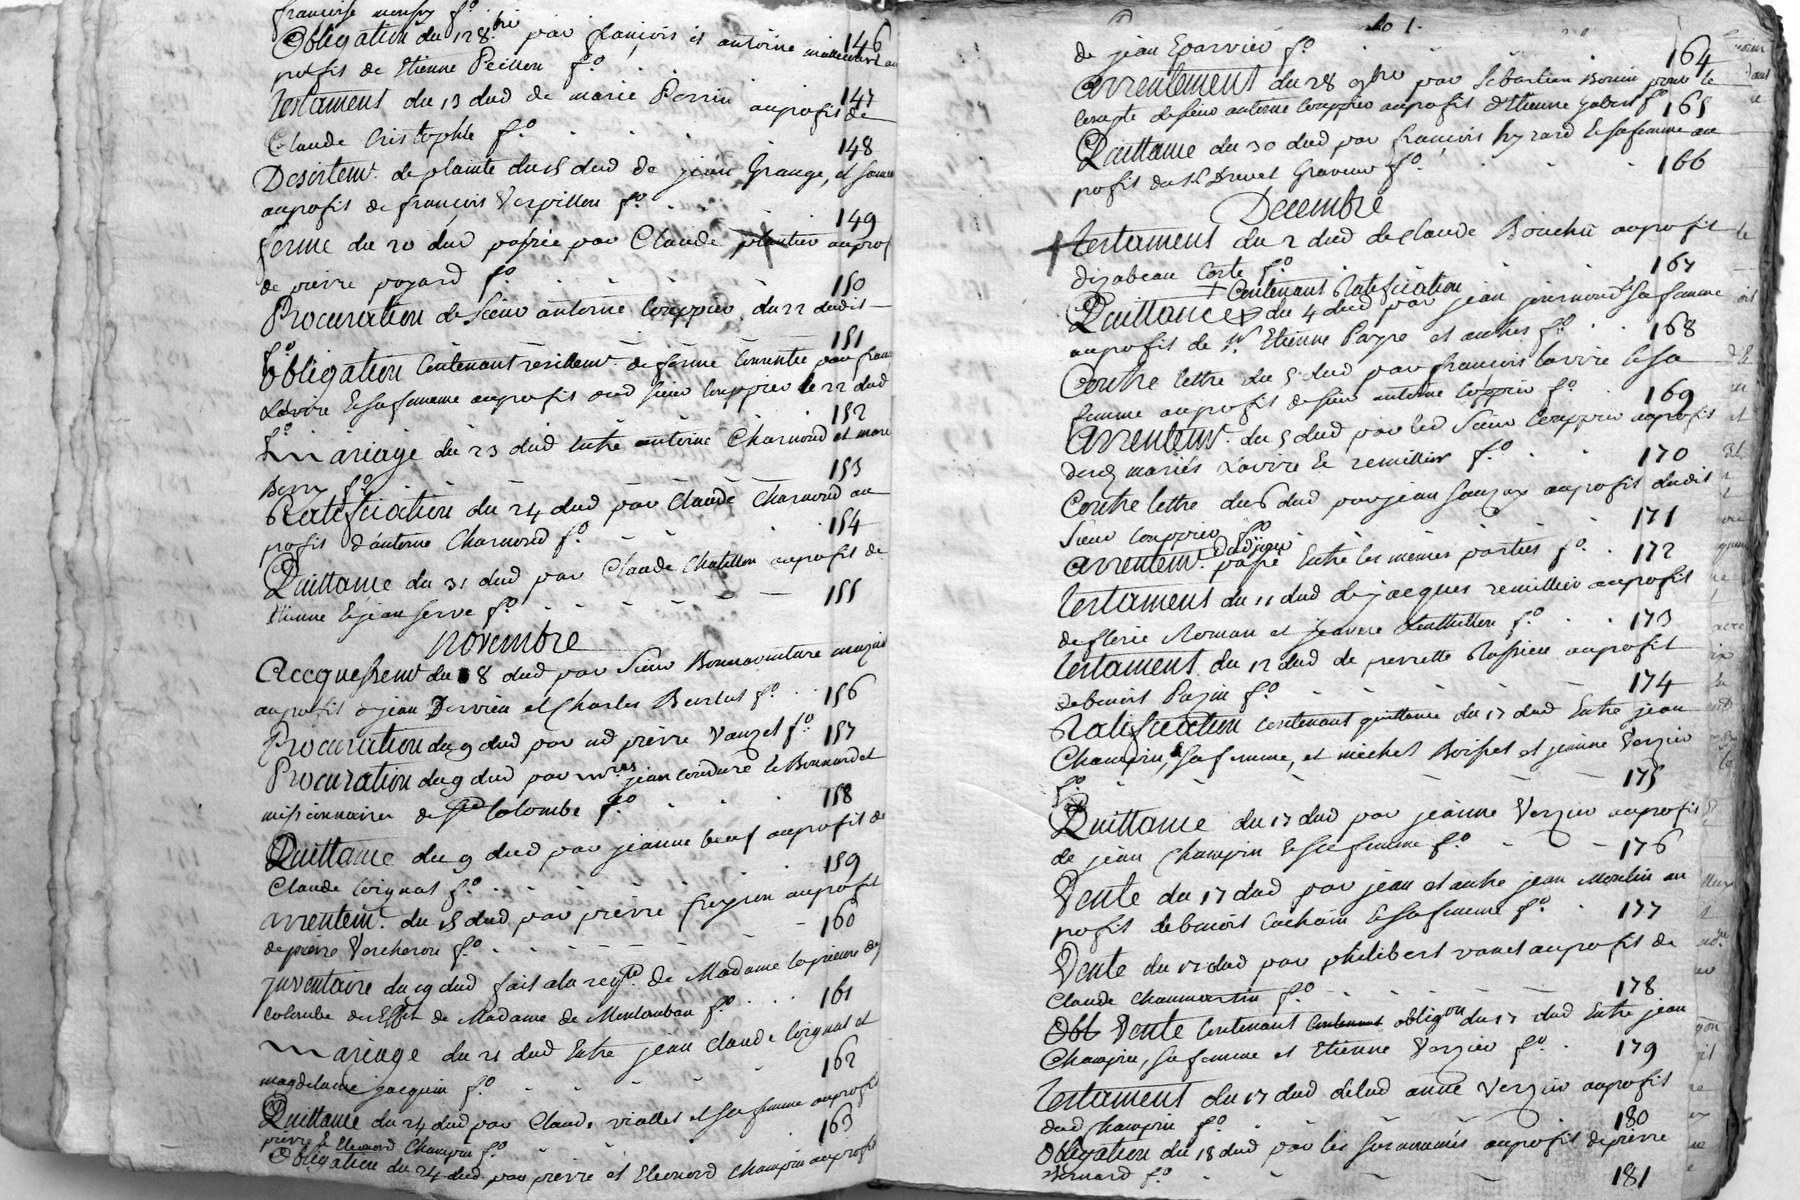 françoise
Obligation du 12 8.bre par françois et antoine
profit de Etienne Peillon f.o 146
Testament du 13 dud de marie Perrin auprofit de
Claude Cristophle f.o 147
Desistem.t de plainte du 15 dud de jean Grange, et
auprofit de françois Verpillon f.o 148
ferme du 20 dud passée par Claude plantier auprof
de pierre poyard f.o 149
Procuration de Sieur antoine Couppier du 22 dudit 150
f.o 151
Obligation Contenant resiliem.t de ferme Consentie par fran
Lavire & sa femme auprofit dud sieur Couppier le 22 dud
f.o 152
mariage du 23 dud Entre antoine Charmond et marie
Berry f.o 153
Ratification du 24 dud par Claude Charmond au
profit d'antoine Charmond f.o 154
Quittance du 31 dud par Claude Chatillon auprofit de
Etienne & jean serve f.o 155
Novembre
Accquessem.t du 8 dud par Sieur Bonnaventure
auprofit de jean Dervieu et Charles f.o 156
Procuration du 9 dud par pierre f.o 157
Procuration du 9 dud par m.rs jean le Bonnardet
missionnaires de Ste Colombe f.o 158
Quittance du 9 dud par jeanne beuf auprofit de
Claude Coignat f.o 159
arrentem.t du 15 dud par pierre freyssin auprofit
de pierre Vercheron f.o 160
juventaire du 19 dud fait a la reqte. de Madame la prieure de
Colombe des Effet de Madame de Montauban f.o 161
mariage du 21 dud Entre jean Claude Coignat et
magdelaine jacquin f.o 162
Quittance du 24 dud par Claude viallet et sa femme auprofit
pierre & Eleonord Champin f.o 163
Obligation du 24 dud par pierre et Eleonord Champin auprofit
101.
de jean Eparvier f.o 164
Arrentement du 28 9bre par Sebastien Bonin pour le
Compte de sieur antoine Couppier auprofit d'Etienne jobert f.o 165
Quittance du 30 dud par françois hyzard & sa femme au
profit du Sr. Drevet Graveur f.o 166
Decembre
Testament du 2 dud de Claude Bouchu auprofit
dizabeau Corte f.o 167
+ Contenant Ratification
Quittance + du 4 dud par jean & sa femme
auprofit de Sr. Etienne Payre et autres f.o 168
Contre lettre du 5 dud par françois lavire & sa
femme auprofit de sieur antoine Coppier f.o 169
Arrentem.t du 5 dud par led Sieur Couppier auprofit
desd mariés Lavire & remillier f.o 170
Contre lettre du 6 dud par jean sauzay auprofit dudit
Sieur Couppier f.o 171
Arrentem.t dudjour passé Entre les mêmes parties f.o 172
Testament du 11 dud de jacques remillier auprofit
de florie Roman et jeanne f.o 173
Testament du 12 dud de pierrette auprofit
de benoit Pazin f.o 174
Ratification Contenant quittance du 17 dud Entre jean
Champin, & sa femme, et michel Boisset et jeanne Verzier
f.o 175
Quittance du 17 dud par jeanne Verzier auprofit
de jean Champin & sa femme f.o 176
Vente du 17 dud par jean et autre jean Moulin au
profit de benoit Cachain & sa femme f.o 177
Vente du 17 dud par philibert vanet auprofit de
Claude Chaumartin f.o 178
Obl Vente Contenant Contenant oblig.on du 17 dud Entre jean
Champin, sa femme et Etienne Verzier f.o 179
Testament du 17 dud de lad anne Verzier auprofit
dud Champin f.o 180
Obligation du 18 dud par les surnommés auprofit de pierre
Bernard f.o 181